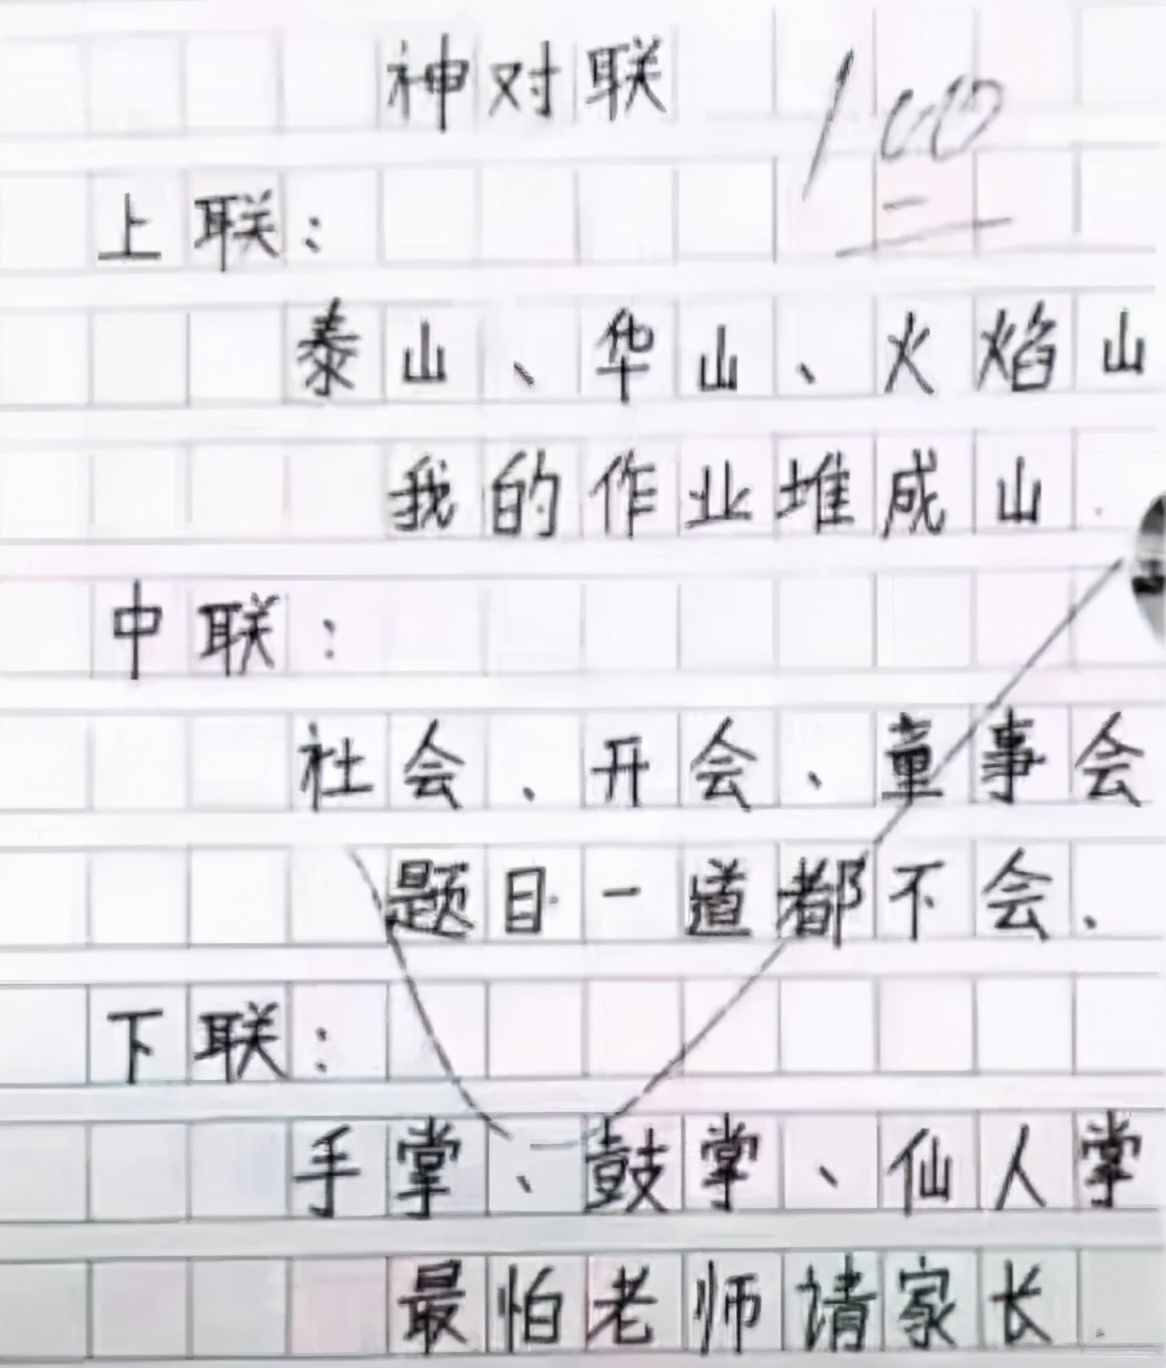 神对联
100
上联：
泰山、华山、火焰山
我的作业堆成山.
中联：
社会、开会、童事会
题目一道都不会.
下联：
手掌、鼓掌、仙人掌
最怕老师请家长.